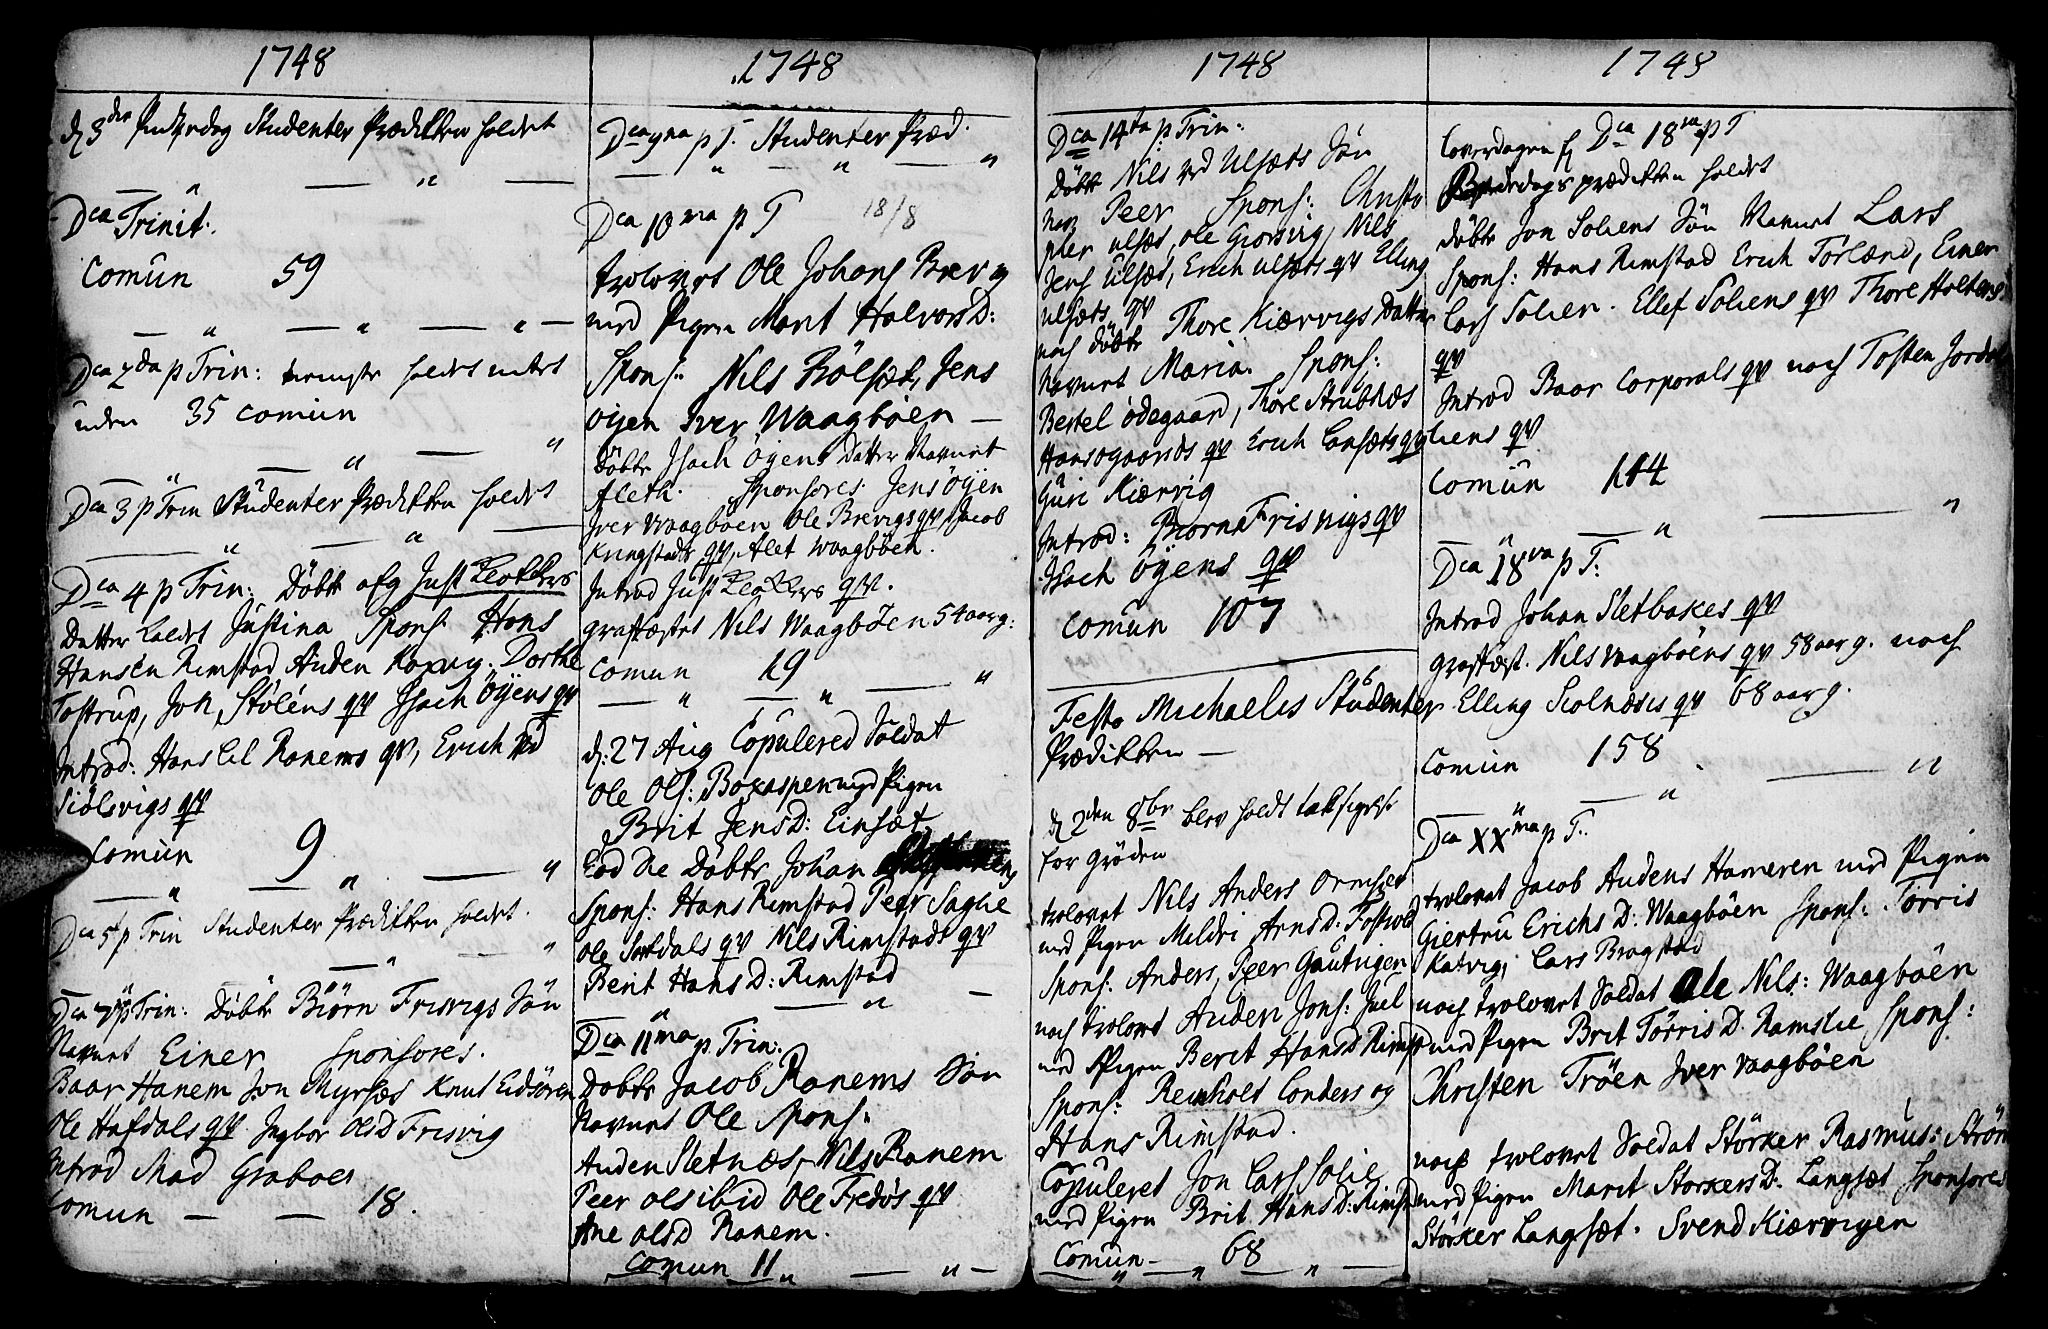 1748
d 3die Pintzedag Studenter Prædikken holdet
Dca Trinit.
Comun 59
Dca 2da p Trin: holdet
uden 35 comun
Dca 3 p Trin Studenter Prædikken holdet
Dca 4 p Trin: Döbt afg Just Klokkers
Datter kaldet Justina Spons: Hans
Hansen Rimstad, Auden Dorthe
Tostrup, Joh, Stölens qv Isach Öyens qv
Introd: Hans lil Ranems qv, Erich
Siölsvigs qv
Comun 9
Dca 5t p Trin Studenter Prædikken holdet.
Dca 7 p Trin: Döbt Biörn Frisvigs Sön
Navnet Einer Sponsores.
Baar Hanem Jon Myrsæs Knut Eidsören
Ole Hafdals qv Ingbor OlsD Frisvig
Introd Mad Graboes
Comun — — 18.
1748
Dca 9na p T. Studenter Præd.
Dca 10ma p T 18/8
trolovet Ole Johans Brevig
med Pigen Marit HalvorsD:
Spons: Nils Bölsæt, Jens
Öyen Iver Waagböen —
Döbt Isach Öyens Datter Navnet
Aleth. Sponsores Jens Öyen
Iver Waagböen Ole Brevigs qv Jacob
Kringstads qv, Alet Waagböen.
Introd Just Klokkers qv.
graffæstet Nils Waagböen 54 aarg:
Comun 19
d: 27 Aug Copulered Soldat
Ole Ols: Boxaspen med Pigen
Brit JensD: Einsæt
Eod die Döbt Johan
Spons: Hans Rimstad Peer Saghe
Ole Sotdals qv Nils Rimstads qv
Berit HansD: Rimstad
Dca 11ma p. Trin:
Döbt Jacob Ranems Sön
Navnet Ole Spons:
Auden Sletnæs, Nils Ranem
Peer Ols ibid Ole Fredös qv
Ane OlsD Ranem.
Comun 11
1748
Dca 14ta p Trin:
Döbt Nils ved Ulsæts Sön
nav: Peer Spons: Christo
pher Ulsæt, Ole Grorvig, Nils
Jens Ulsæt, Erich Ulsæts qv Elling
Ulsæts qv
noch döbt Thore Kiærvigs Datter
Navnet Maria. Spons:
Bertel Ödegaard, Thore Strubnæs
Hansogaards qv Erich Lansæts qv
Guri Kiærvig
Introd: Biörn Frisvigs qv
Isach Öyens qv
Comun 107
Festo Michaelis Studenter
Prædikken —
d 2den 8br blev holdt taksigelse
for Gröden
trolovet Nils Anders Ormset
med Pigen Mildri ArnsD. Fostvold
Spons: Anders, Peer Gautvigen
noch trolovet Auden Jons: Juel
med Pigen Berit HansD Rimst
Spons: Reinholt Conders og
Hans Rimstad.
Copuleret Jon Lars Solie
med Pigen Brit HansD: Rimst
Comun — 68
1748
Loverdagen f Dca 18va p T
prædikken holdet
döbt Jon Soliens Sön Navnet Lars
Spons: Hans Rimstad Erich Torland, Einer
Lars Solien. Ellef Soliens qv Thore Holtens
qv
Introd Baar Corporals qv noch Tosten Jordal
liens qv
Comun 114
Dca 18va p T:
Introd Johan Sletbakes qv
Graffæst. Nils Waagböens qv 58 aar g. noch
Elling Siolnæsis qv 68 aar g.
Comun 158
Dca XXma p T.:
trolovet Jacob Audens Hameren med Pigen
Giertru ErichsD: Waagböen Spons: Torris
Katvig, Lars Bragstad
noch trolovet Soldat Ole Nils: Waagböen
med Pigen Brit TörrisD. Ramslie Spons:
Christen Tröen Iver Waagböen
noch trolovet Soldat Störker Rasmus: Ström
med Pigen Marit StörkersD. Langsæt Sponsores
Störker Langsæt. Svend Kiærvigen